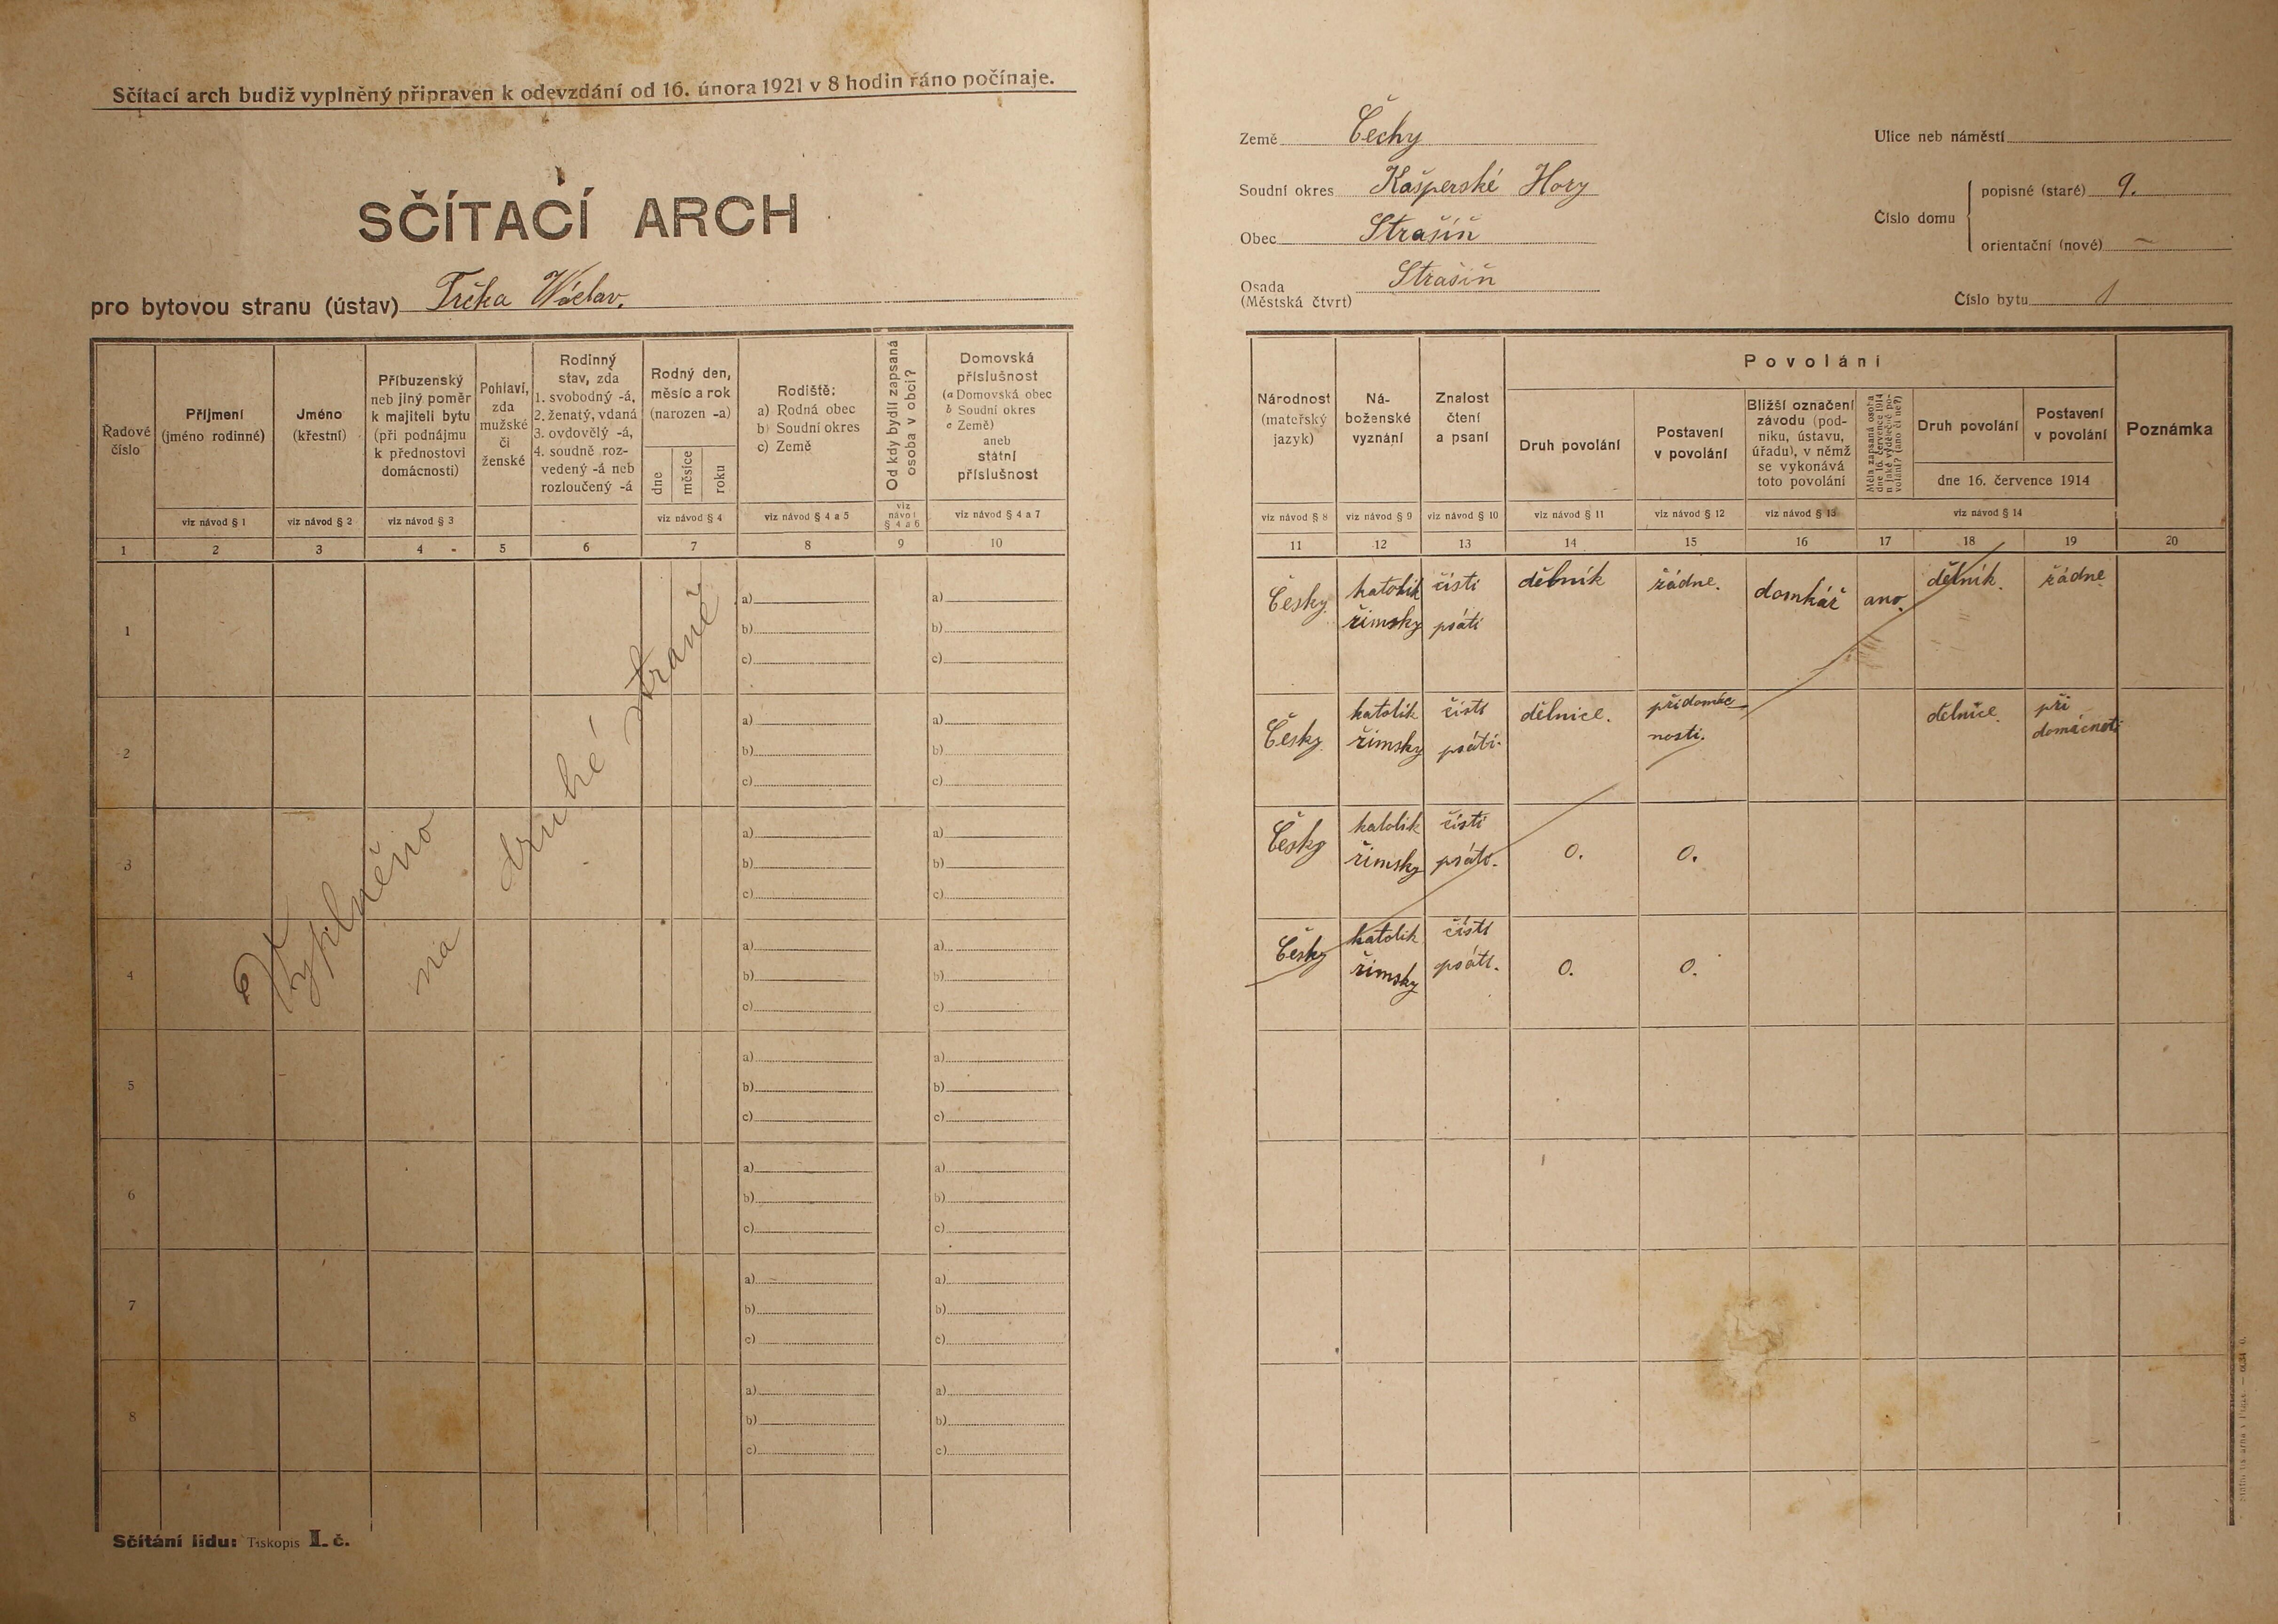 Sčítací arch budiž vyplněný připraven k odevzdání od 16. února 1921 v 8 hodin ráno počínaje.
SČÍTACÍ ARCH
pro bytovou stranu (ústav) Trčka Wáclav.
Řadové číslo
Příjmení
(jméno rodinné)
viz návod § 1
Jméno
(křestní)
viz návod § 2
Příbuzenský
neb jiný poměr
k majiteli bytu
(při podnájmu
k přednostovi
domácnosti)
viz návod § 3
Pohlaví,
zda
mužské
či
ženské
Rodinný
stav, zda
1. svobodný -á,
2. ženatý, vdaná
3. ovdovělý -á,
4. soudně roz-
vedený -á neb
rozloučený -á
Rodný den,
měsíc a rok
(narozen -a)
dne
měsíce
roku
viz návod § 4
Rodiště:
a) Rodná obec
b) Soudní okres
c) Země
viz návod § 4 a 5
Od kdy bydlí zapsaná
osoba v obci?
viz
návod
§ 4 a 6
Domovská
příslušnost
(a Domovská obec
b Soudní okres
c Země)
aneb
státní
příslušnost
viz návod § 4 a 7
1 2 3 4 5 6 7 8 9 10
1
a) a)
b) b)
c) c)
2
a) a)
b) b)
c) c)
3
a) a)
b) b)
c) c)
4
a) a)
b) b)
c) c)
5
a) a)
b) b)
c) c)
6
a) a)
b) b)
c) c)
7
a) a)
b) b)
c) c)
8
a) a)
b) b)
c) c)
Vyplněno
na
druhé straně
Sčítání lidu: Tiskopis I. č.
Země Čechy
Soudní okres Kašperské Hory
Obec Strašíň
Osada Strašín
(Městská čtvrt)
Ulice neb náměstí
Číslo domu
popisné (staré) 9.
orientační (nové) –
Číslo bytu 1
Národnost
(mateřský
jazyk)
viz návod § 8
Ná-
boženské
vyznání
viz návod § 9
Znalost
čtení
a psaní
viz návod § 10
Povolání
Druh povolání
viz návod § 11
Postavení
v povolání
viz návod § 12
Bližší označení
závodu (pod-
niku, ústavu,
úřadu), v němž
se vykonává
toto povolání
viz návod § 13
Měla zapsaná osoba
dne 16. července 1914
nějaké výdělečné po-
volání? (ano či ne?)
Druh povolání
Postavení
v povolání
dne 16. července 1914
viz návod § 14
Poznámka
11 12 13 14 15 16 17 18 19 20
Česky. katolik čísti dělník žádne. domkář ano. dělník. žádne
římsky psáti
Česky. katolik čísti dělnice. přidomác dělnice. při
římsky psáti. nosti. domácnosti
Česky katolik čísti 0. 0.
římsky psáti.
Česky katolik čísti 0. 0.
římsky psáti.